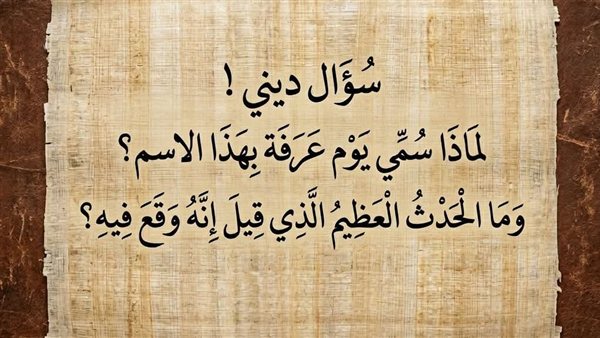 سُؤَال ديني !
لمَاذَا سُمِّي يَوْم عَرَفَة بِهَذَا الاسم؟
وَمَا الْحَدْثُ الْعَظِيمُ الَّذِي قِيلَ إِنَّهُ وَقَعَ فِيهِ؟